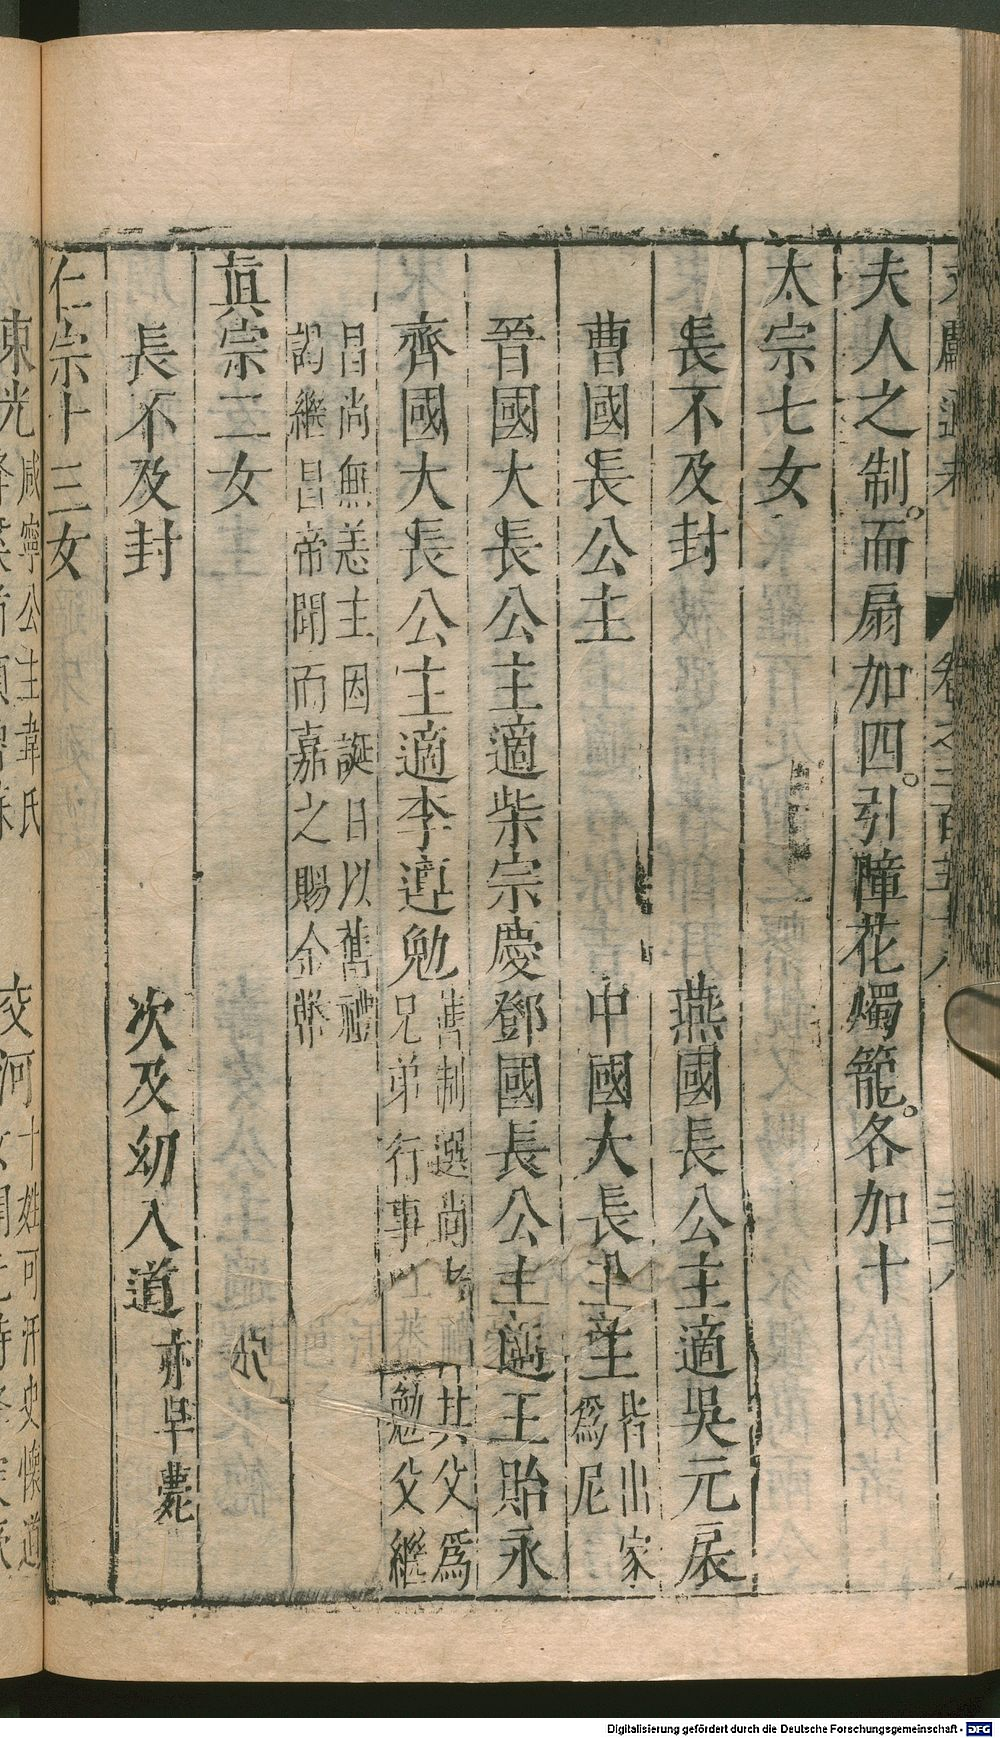 夫人之制。而扇加四。引障花燭籠。各加十
太宗七女
長不及封　燕國長公主適吳元扆
曹國長公主　申國大長公主皆出家
為尼
晉國大長公主適柴宗慶鄧國長公主適王貽永
齊國大長公主適李遵勉舊制選尚者其父為
兄弟行事以遵勉父繼
昌尚無恙主因誕日以舊禮
謁繼昌帝聞而嘉之賜金幣
眞宗二女
長不及封　次及幼入道亦早薨
仁宗十三女
東光咸寧公主韋氏
交河十姓可汗史懷道
Digitalisierung gefördert durch die Deutsche Forschungsgemeinschaft - DFG